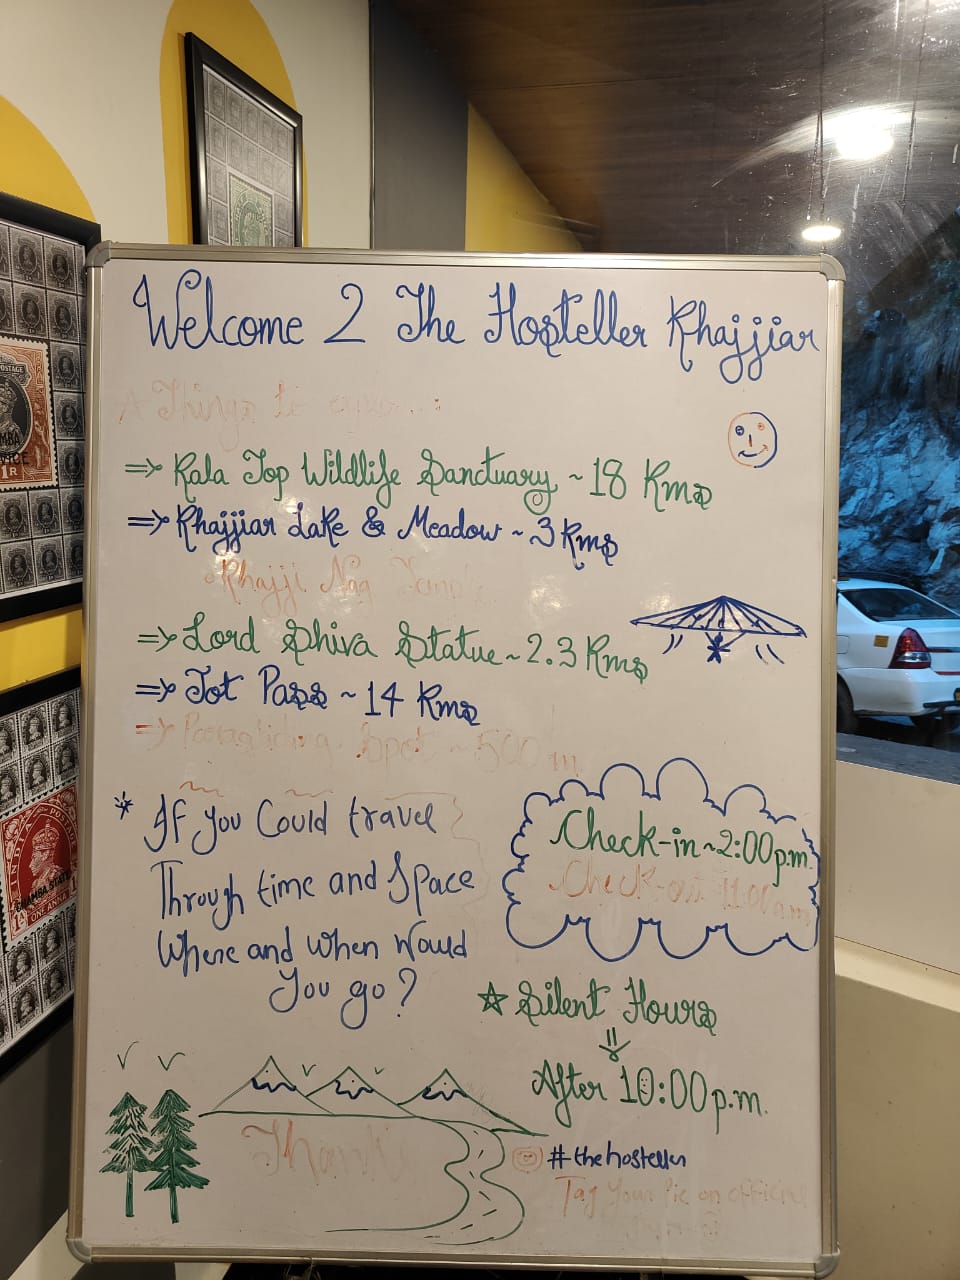 Welcome 2 The Hosteller Khajjiar
Things to
=> Kala Top Wildlife Sanctuary ~ 18 Kms
=> Khajjiar Lake & Meadow ~ 3 Kms
Khajji Nag Temple
=> Lord Shiva Statue ~ 2.3 Kms
=> Jot Pass ~ 14 Kms
=> Paragliding Spot ~ 500 m
* If you Could travel
Through time and Space
Where and when Would
You go?
Check-in ~ 2:00 p.m.
Check-out 11:00 am
☆ Silent Hours
After 10:00 p.m.
#thehosteller
Tag Your Pic on official
Thank
POSTAGE
INDIA POSTAGE
CHAMBA STATE
ONE ANNA